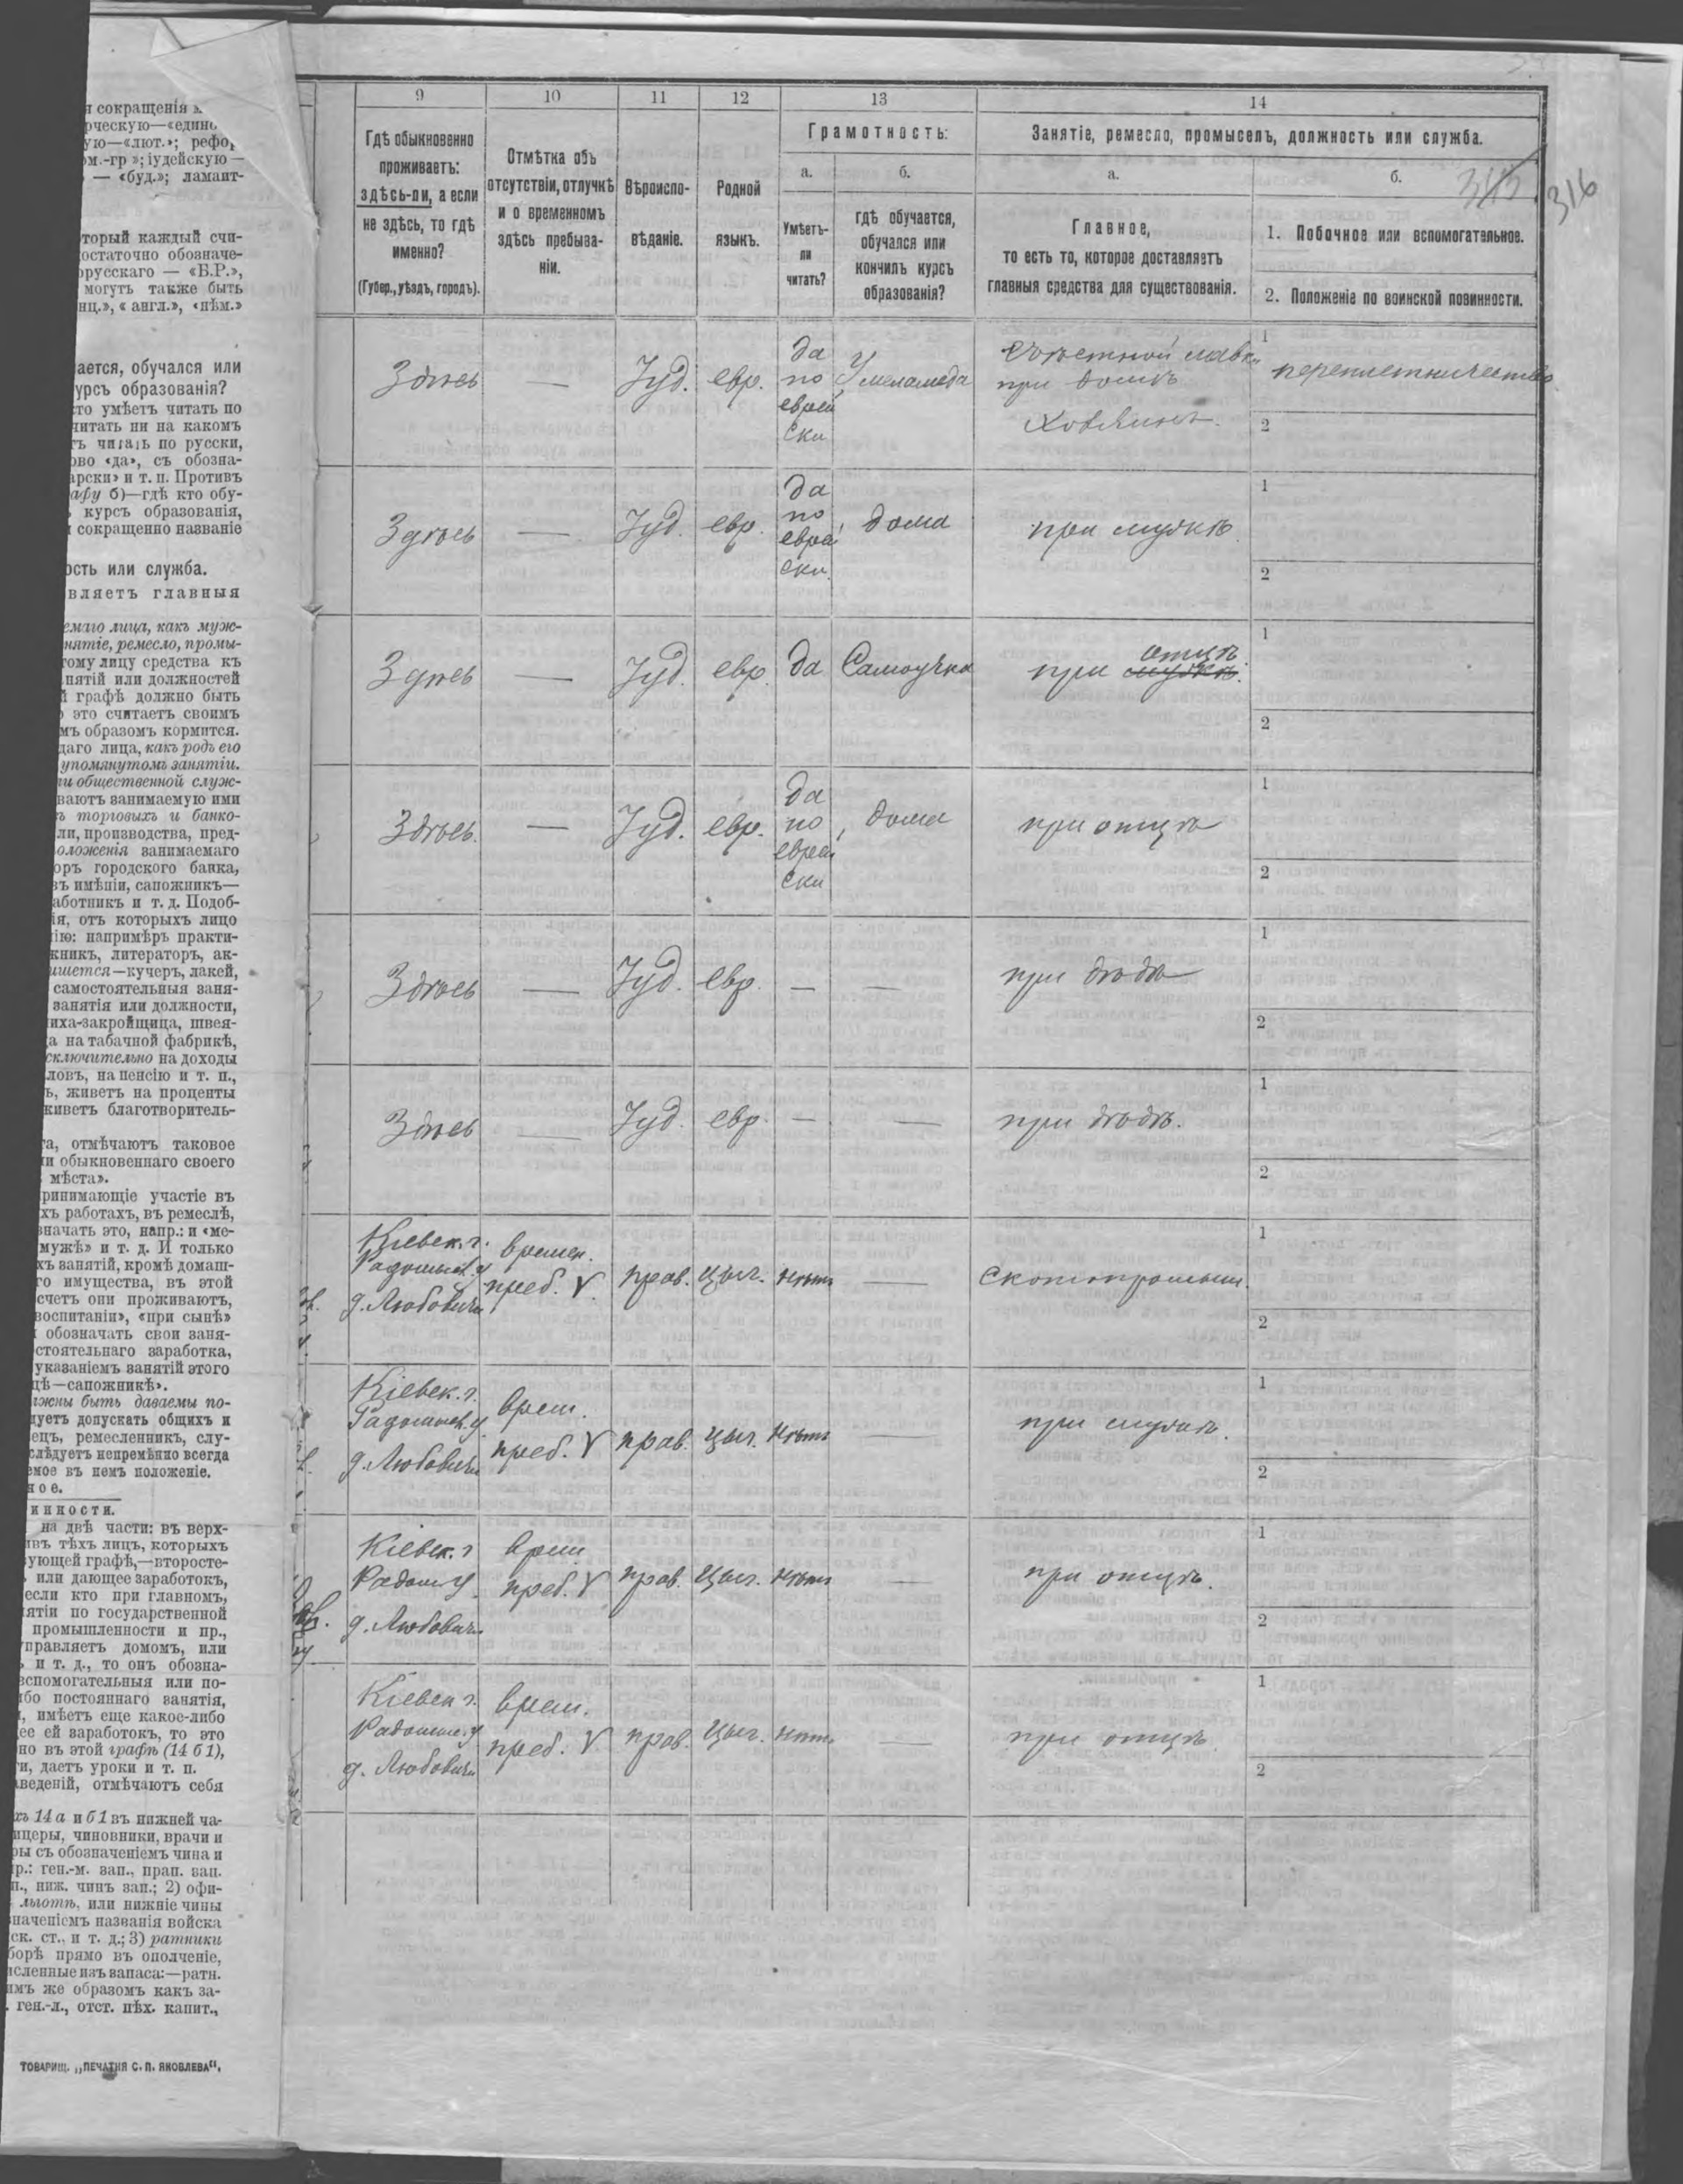 я сокращенія
рческую—«едино
ую—«лют.»; рефор
м.-гр»; іудейскую —
— «буд.»; ламаит-
торый каждый счи-
остаточно обозначе-
русскаго — «Б.Р.»,
могутъ также быть
нц.», «англ.», «нѣм.»
ается, обучался или
урсъ образованія?
то умѣетъ читать по
читать ни на какомъ
ъ читать по русски,
ово «да», съ обозна-
арски» и т. п. Противъ
афу б)—гдѣ кто обу-
курсъ образованія,
сокращенно названіе
ость или служба.
вляетъ главныя
емаго лица, какъ муж-
нятіе, ремесло, промы-
тому лицу средства къ
нятій или должностей
й графѣ должно быть
это считаетъ своимъ
мъ образомъ кормится.
даго лица, какъ родъ его
упомянутомъ занятіи.
и общественной служ-
ваютъ занимаемую ими
ъ торговыхъ и банко-
ли, производства, пред-
оложенія занимаемаго
оръ городского банка,
въ имѣніи, сапожникъ—
аботникъ и т. д. Подоб-
ія, отъ которыхъ лицо
ію: напримѣръ практи-
жникъ, литераторъ, ак-
ишется—кучеръ, лакей,
самостоятельныя заня-
занятія или должности,
иха-закройщица, швея-
а на табачной фабрикѣ,
сключительно на доходы
ловъ, на пенсію и т. п.,
ь, живетъ на проценты
живетъ благотворитель-
та, отмѣчаютъ таковое
и обыкновеннаго своего
мѣста».
ринимающіе участіе въ
хъ работахъ, въ ремеслѣ,
значать это, напр.: и «ме-
мужѣ» и т. д. И только
хъ занятій, кромѣ домаш-
го имущества, въ этой
счетъ они проживаютъ,
воспитаніи», «при сынѣ»
обозначать свои заня-
стоятельнаго заработка,
указаніемъ занятій этого
цѣ—сапожникѣ».
лжны быть даваемы по-
дуетъ допускать общихъ и
ецъ, ремесленникъ, слу-
слѣдуетъ непремѣнно всегда
емое въ немъ положеніе.
ное.
инности.
на двѣ части: въ верх-
ивъ тѣхъ лицъ, которыхъ
ующей графѣ,—второсте-
или дающее заработокъ,
если кто при главномъ,
ятіи по государственной
промышленности и пр.,
правляетъ домомъ, или
и т. д., то онъ обозна-
вспомогательныя или по-
ибо постояннаго занятія,
, имѣетъ еще какое-либо
ее ей заработокъ, то это
но въ этой графѣ (14 б1),
и, даетъ уроки и т. п.
аведеній, отмѣчаютъ себя
хъ 14 а и б1 въ нижней ча-
ицеры, чиновники, врачи и
ры съ обозначеніемъ чина и
р.: ген.-м. зап., прап. зап.
п., ниж. чинъ зап.; 2) офи-
льготѣ, или нижніе чины
наченіемъ названія войска
ск. ст., и т. д.; 3) ратники
борѣ прямо въ ополченіе,
исленные изъ запаса:—ратн.
имъ же образомъ какъ за-
. ген.-л., отст. пѣх. капит.,
ТОВАРИЩ. „ПЕЧАТНЯ С. П. ЯКОВЛЕВА“.
9 10 11 12 13 14
Гдѣ обыкновенно
проживаетъ:
здѣсь-ли, а если
не здѣсь, то гдѣ
именно?
(Губер., уѣздъ, городъ).
Отмѣтка объ
отсутствіи, отлучкѣ
и о временномъ
здѣсь пребыва-
ніи.
Вѣроиспо-
вѣданіе.
Родной
языкъ.
Грамотность:
а.
Умѣетъ-
ли
читать?
б.
гдѣ обучается,
обучался или
кончилъ курсъ
образованія?
Занятіе, ремесло, промыселъ, должность или служба.
а.
Главное,
то есть то, которое доставляетъ
главныя средства для существованія.
б.
315
316
1. Побочное или вспомогательное.
2. Положеніе по воинской повинности.
Здѣсь — Іуд. евр.
да
по
еврей
ски
У меламеда
при домѣ
Хозяинъ.
1 переплетничество
2
Здѣсь — Іуд. евр.
да
по
еврей
ски
дома
при мужѣ.
1
2
Здѣсь — Іуд. евр. да Самоучка
отцѣ.
при мужѣ.
1
2
Здѣсь. — Іуд. евр.
да
по
еврей
ски
дома
при отцѣ
1
2
Здѣсь — Іуд. евр. — —
при дѣдѣ
1
2
Здѣсь — Іуд. евр. — —
при дѣдѣ.
1
2
Кіевск. г.
Радомысл. у
д. Любовичи
времен.
преб. V.
прав. цыг. нѣтъ —
Скотопромышл.
1
2
Кіевск. г.
Радомысл. у.
д. Любовичи
врем.
преб. V
прав. цыг. нѣтъ —
при мужѣ.
1
2
Кіевск. г
Радом. у.
д. Любович.
врем
преб. V
прав. цыг. нѣтъ —
при отцѣ.
1
2
Кіевск г.
Радомыс. у
д. Любовичи
врем.
преб. V
прав. цыг. нѣтъ —
при отцѣ
1
2